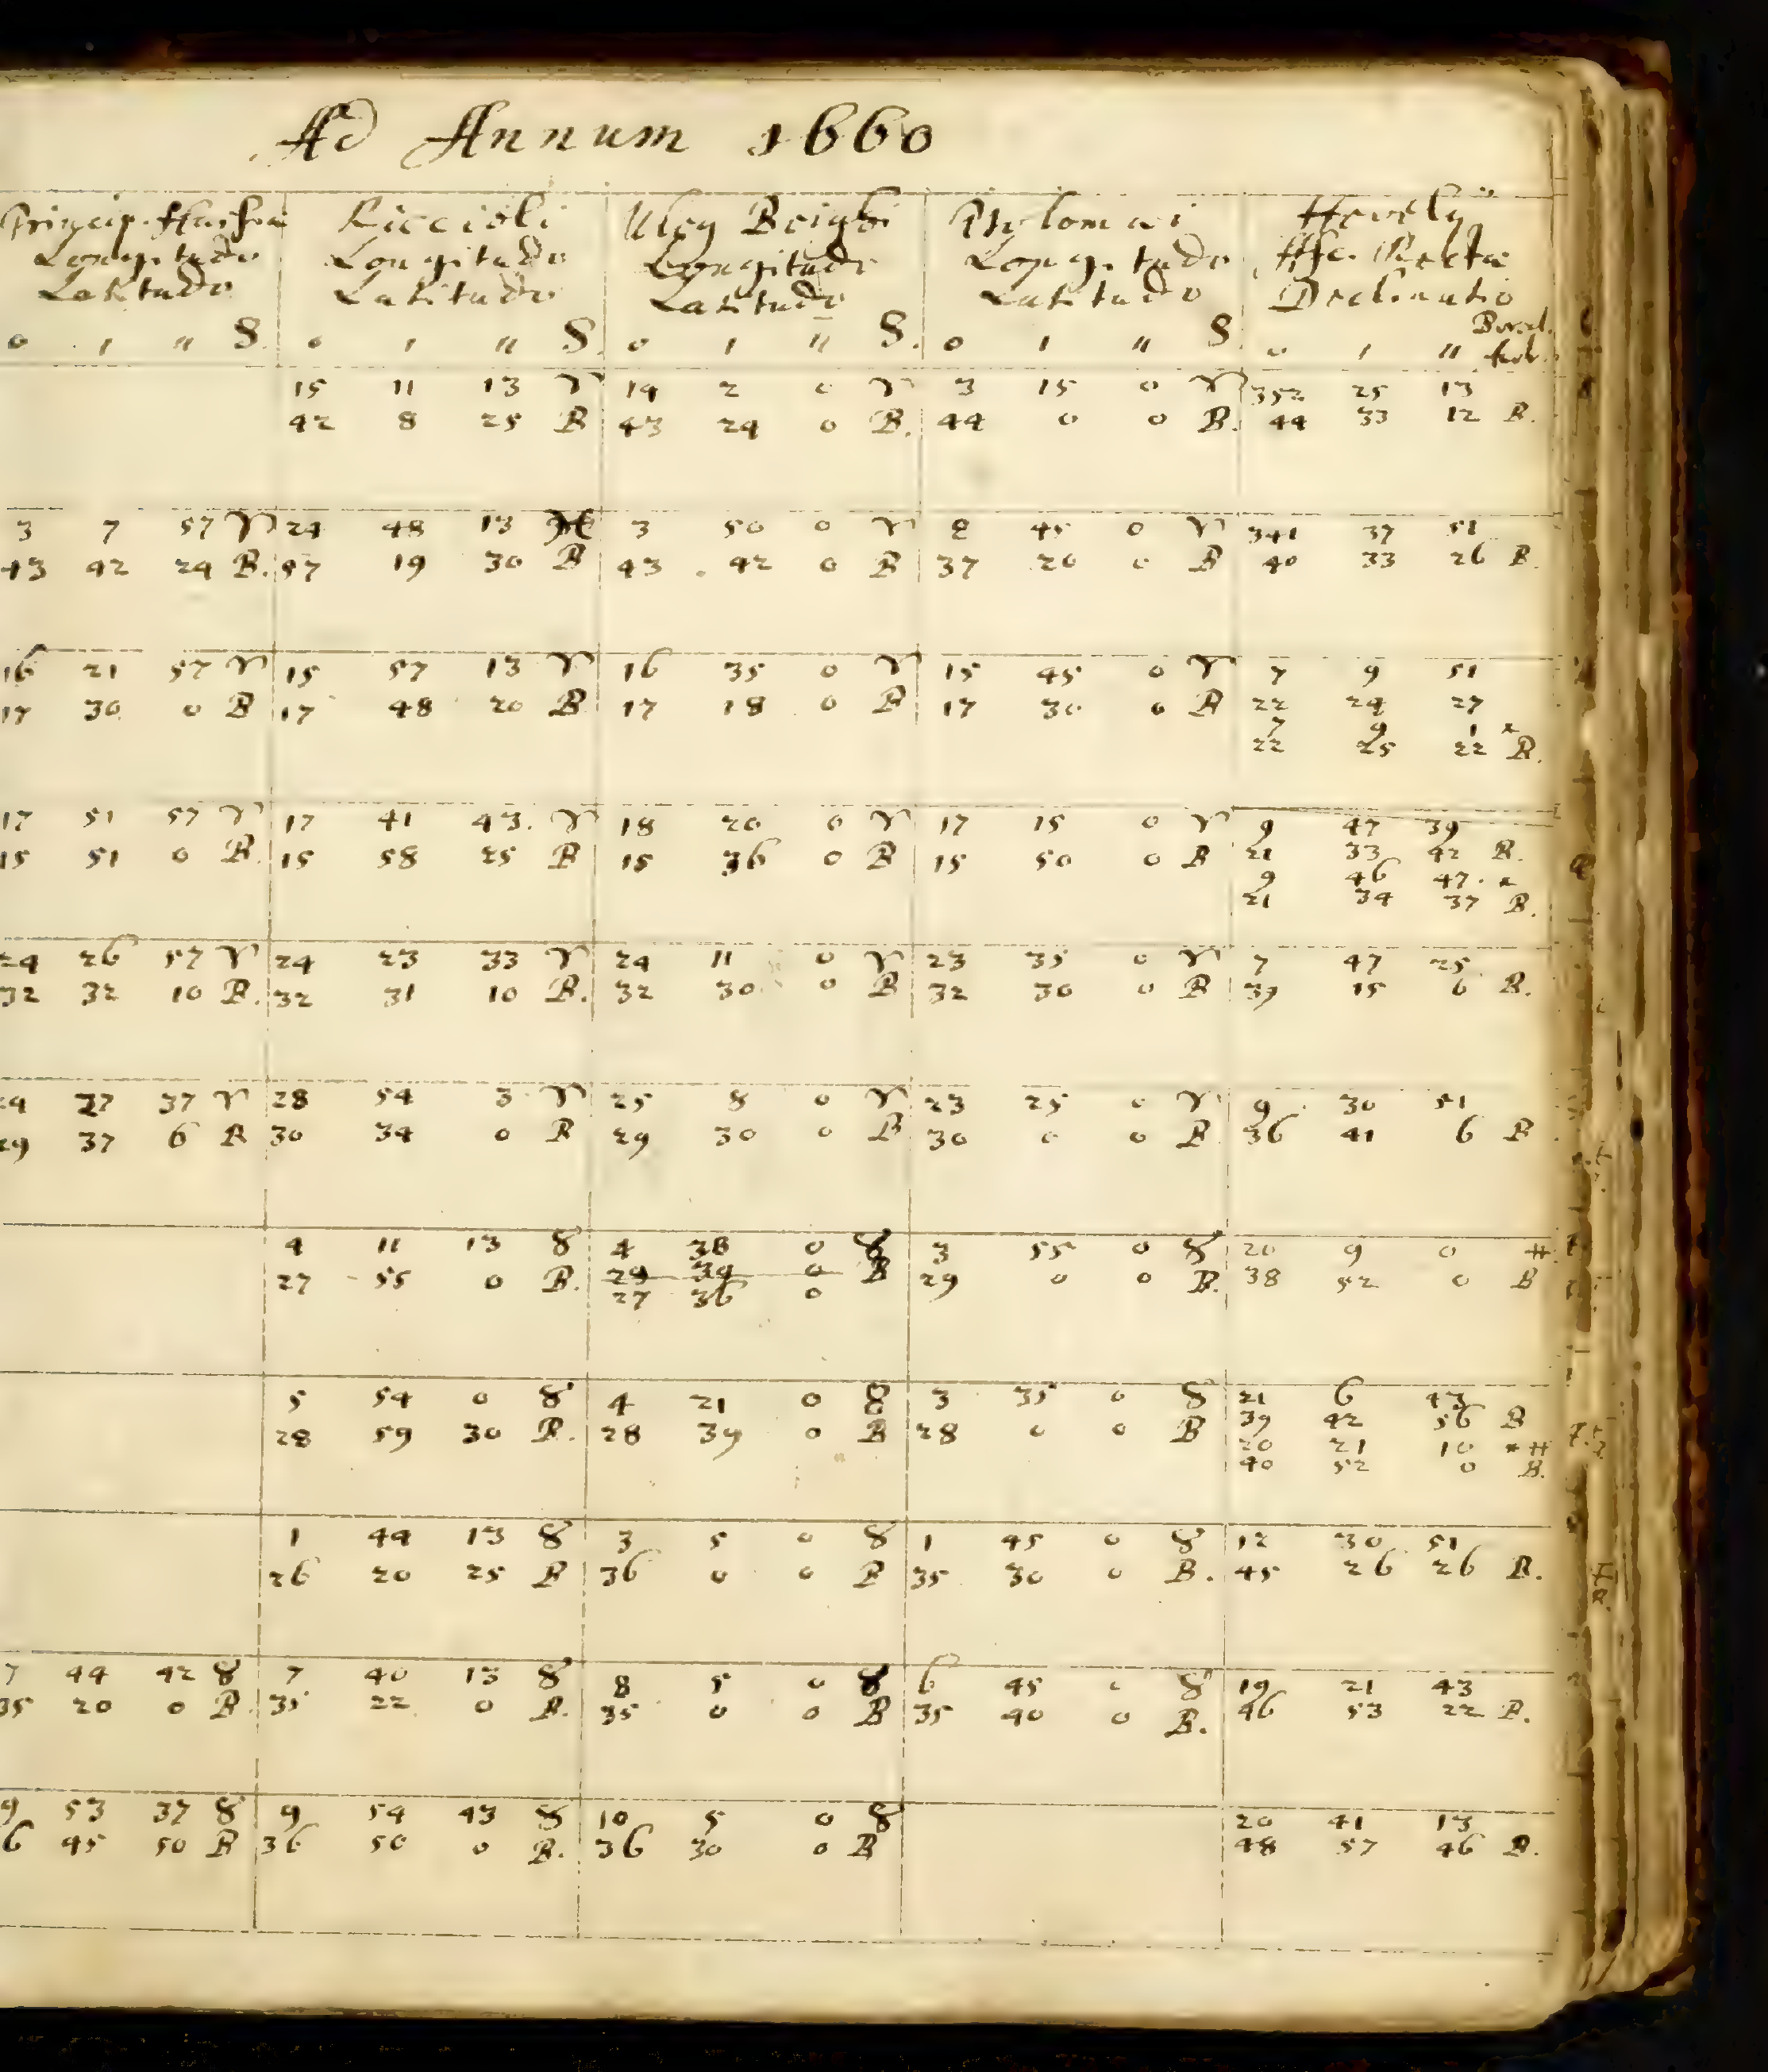 Ad Annum 1660
Princip. Hassiæ Riccioli Uleg Beighi Ptolomæi Hevelij
Longitudo Longitudo Longitudo Longitudo Asc. Recta
Latitudo Latitudo Latitudo Latitudo Declinatio
Boreal.
0 ı ıı S. 0 ı ıı S. 0 ı ıı S. 0 ı ıı S. 0 ı ıı
15 11 13 ♈ 14 2 0 ♈ 3 15 0 ♈ 352 25 13
42 8 25 B 43 24 0 B. 44 0 0 B. 44 33 12 B.
3 7 57 ♈ 24 48 13 ♓ 3 50 0 ♈ 2 45 0 ♈ 341 37 51
43 42 24 B. 57 19 30 B 43 42 0 B 37 20 0 B 40 33 26 B.
16 21 57 ♈ 15 57 13 ♈ 16 35 0 ♈ 15 45 0 ♈ 7 9 51
17 30 0 B 17 48 20 B 17 18 0 B 17 30 0 B 22 24 27
7 9 1 *
22 25 22 B.
17 51 57 ♈ 17 41 43. ♈ 18 20 0 ♈ 17 15 0 ♈ 9 47 39
15 51 0 B. 15 58 25 B 15 36 0 B 15 50 0 B 21 33 42 B.
9 46 47. *
21 34 37 B.
24 26 57 ♈ 24 23 33 ♈ 24 11 0 ♈ 23 35 0 ♈ 7 47 25
32 32 10 B. 32 31 10 B. 32 30 0 B 32 30 0 B 39 15 6 B.
24 37 37 ♈ 28 54 3 ♈ 25 8 0 ♈ 23 25 0 ♈ 9 30 51
29 37 6 B 30 34 0 B 29 30 0 B 30 0 0 B 36 41 6 B
4 11 13 ♉ 4 38 0 ♉ 3 55 0 ♉ 20 9 0 #
27 55 0 B. 29 39 0 B 29 0 0 B. 38 52 0 B
27 36 0
5 54 0 ♉ 4 21 0 ♉ 3 35 0 ♉ 21 6 43
28 59 30 B. 28 39 0 B 28 0 0 B 39 42 56 B
20 21 10 *#
40 52 0 B.
1 44 13 ♉ 3 5 0 ♉ 1 45 0 ♉ 12 30 51
26 20 25 B 36 0 0 B 35 30 0 B. 45 26 26 B.
7 44 42 ♉ 7 40 13 ♉ 8 5 0 ♉ 6 45 0 ♉ 19 21 43
35 20 0 B. 35 22 0 B. 35 0 0 B 35 40 0 B. 46 53 22 B.
9 53 37 ♉ 9 54 43 ♉ 10 5 0 ♉ 20 41 13
6 45 50 B 36 50 0 B. 36 30 0 B 48 57 46 B.